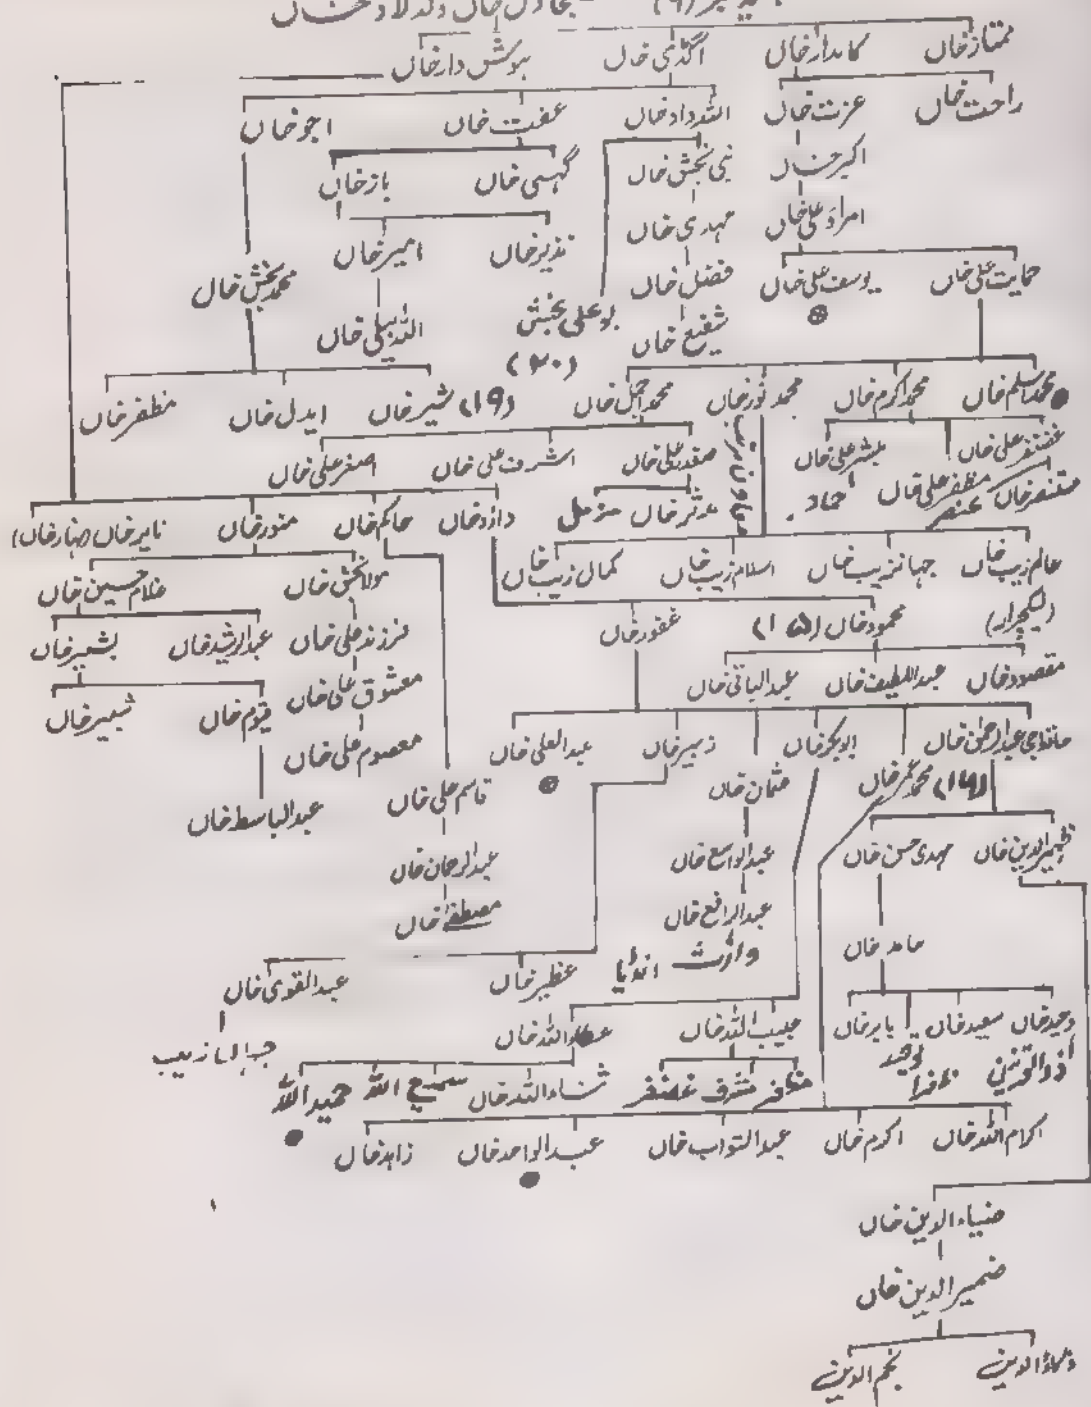 ممتاز خاں کامدار خاں اگڈی خاں ہوشدار خاں
راحت خاں عزت خاں اللہ داد خاں عفیت خاں اجو خاں
اکبر خاں نبی بخش خاں گہسی خاں باز خاں
امراؤ علی خاں مہدی خاں نذیر خاں امیر خاں محمد بخش خاں
حمایت علی خاں یوسف علی خاں فضل خاں بو علی بخش (۲۰) اللہ بیلی خاں
شفیع خاں
محمد اسلم خاں محمد اکرم خاں محمد نور خاں محمد اجمل خاں شیر خاں (۱۹) ایدل خاں مظفر خاں
غضنفر علی خاں مظفر علی خاں مبشر علی خاں صفدر علی خاں اشرف علی خاں اصغر علی خاں
مستنصر خاں حماد معاون مرتب مدثر خاں مزمل داؤد خاں حاکم خاں منور خاں نابر خاں
عالم زیب خاں جہانزیب خاں اسلام زیب خاں کمال زیب خاں مولا بخش خاں غلام حسین خاں
(لیکچرار) محمود خاں (۱۵) غفور خاں فرزند علی خاں عبدالرشید خاں بشیر خاں
مقصود خاں عبداللطیف خاں عبدالباقی خاں معشوق علی خاں قیوم خاں شبیر خاں
حافظ جی عبدالرحمٰن خاں (۱۶) محمد عمر خاں ابوبکر خاں عثمان خاں زبیر خاں عبدالعلی خاں معصوم علی خاں
قاسم علی خاں عبدالباسط خاں
ظہیرالدین خاں مہدی حسن خاں عبدالواسع خاں عبدالرحمان خاں
حامد خاں عبدالرافع خاں مصطفےٰ خاں
وارث انڈیا عظیر خاں عبدالقوی خاں
وحید خاں سعید خاں نوید بابر خاں حبیب اللہ خاں عطاء اللہ خاں
ذوالقرنین مظفر مشرف غضنفر ثناء اللہ خاں سمیع اللہ حمید اللہ
اکرام اللہ خاں اکرم خاں عبدالتواب خاں عبدالواحد خاں زاہد خاں
ضیاءالدین خاں
ضمیرالدین خاں
ذکاؤالدین نجم الدین